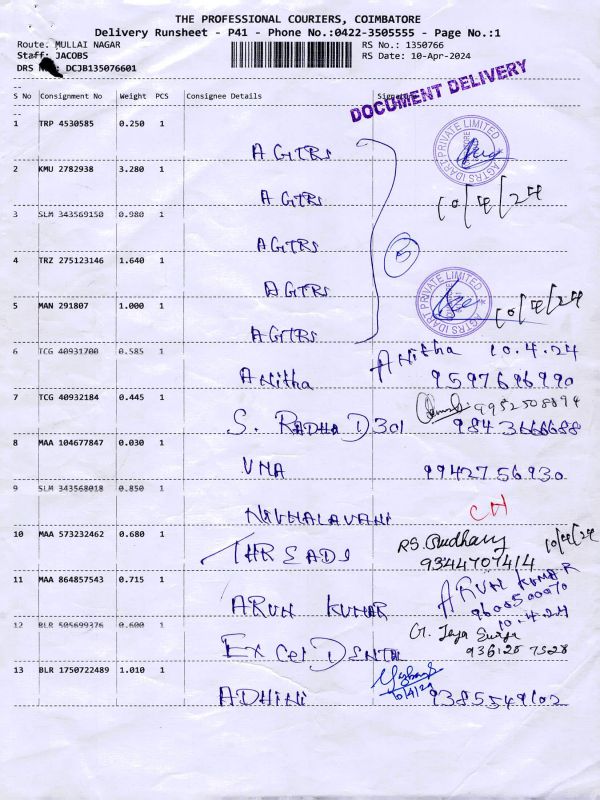 THE PROFESSIONAL COURIERS, COIMBATORE
Delivery Runsheet - P41 - Phone No.:0422-3505555 - Page No.:1
Route: MULLAI NAGAR RS No.: 1350766
Staff: JACOBS RS Date: 10-Apr-2024
DRS DCJB135076601
DOCUMENT DELIVERY
S No Consignment No Weight PCS Consignee Details
1 TRP 4530585 0.250 1
AGTRS
AGTRS IDART PRIVATE LIMITED
2 KMU 2782938 3.280 1
AGTRS 10/4/24
3 SLM 343569150 0.980 1
AGTRS 5
4 TRZ 275123146 1.640 1
AGTRS
AGTRS IDART PRIVATE LIMITED
10/4/24
5 MAN 291807 1.000 1
AGTRS
6 TCG 40931700 0.585 1 Anitha 10.4.24
Anitha 9597696990
7 TCG 40932184 0.445 1 9952508894
S. RADHA D301 9843666688
8 MAA 104677847 0.030 1
VNA 9942756930
9 SLM 343568018 0.850 1 CH
10 MAA 573232462 0.680 1 10/4/24
THREADS 9344707414
11 MAA 864857543 0.715 1 ARUN KUMAR
ARUN KUMAR 9600500070
10.4.24
12 BLR 505699376 0.600 1 G. Jaya Surya
Excel Dental
13 BLR 1750722489 1.010 1
ADHINI 9385549102